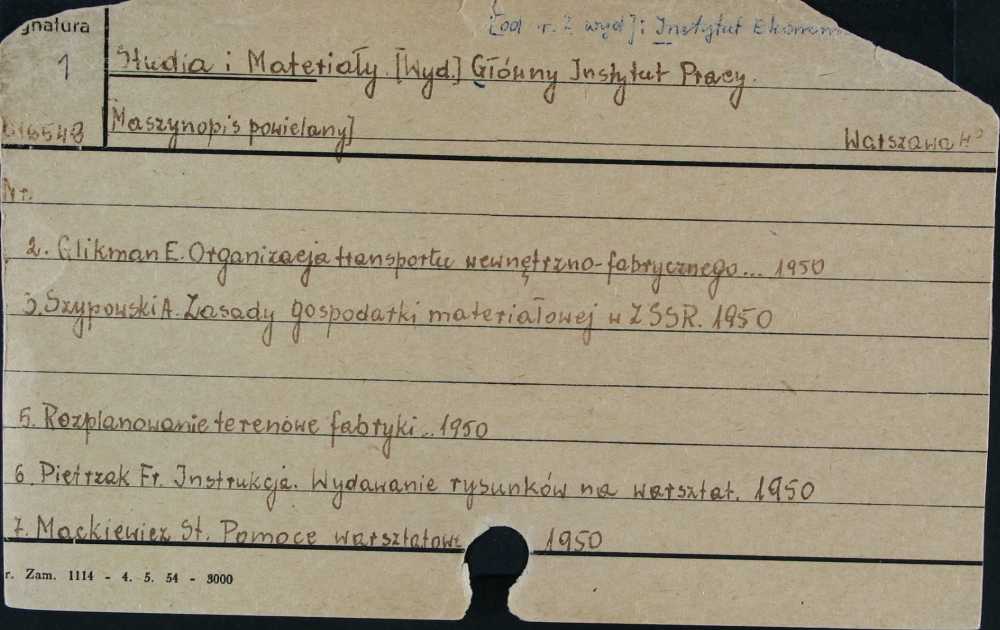 [od r. 2 wyd]: Instytut Ekonom
gnatura
1 Studia i Materiały. [Wyd.] Główny Instytut Pracy.
Maszynopis powielany] Warszawa
Nr.
2. Glikman E. Organizacja transportu wewnętrzno-fabrycznego... 1950
3. Szypowski A. Zasady gospodarki materiałowej w ZSSR. 1950
5. Rozplanowanie terenowe fabryki... 1950
6. Pietrzak Fr. Instrukcja. Wydawanie rysunków na warsztat. 1950
7. Mackiewicz St. Pomoce warsztatowe 1950
r. Zam. 1114 - 4. 5. 54 - 3000